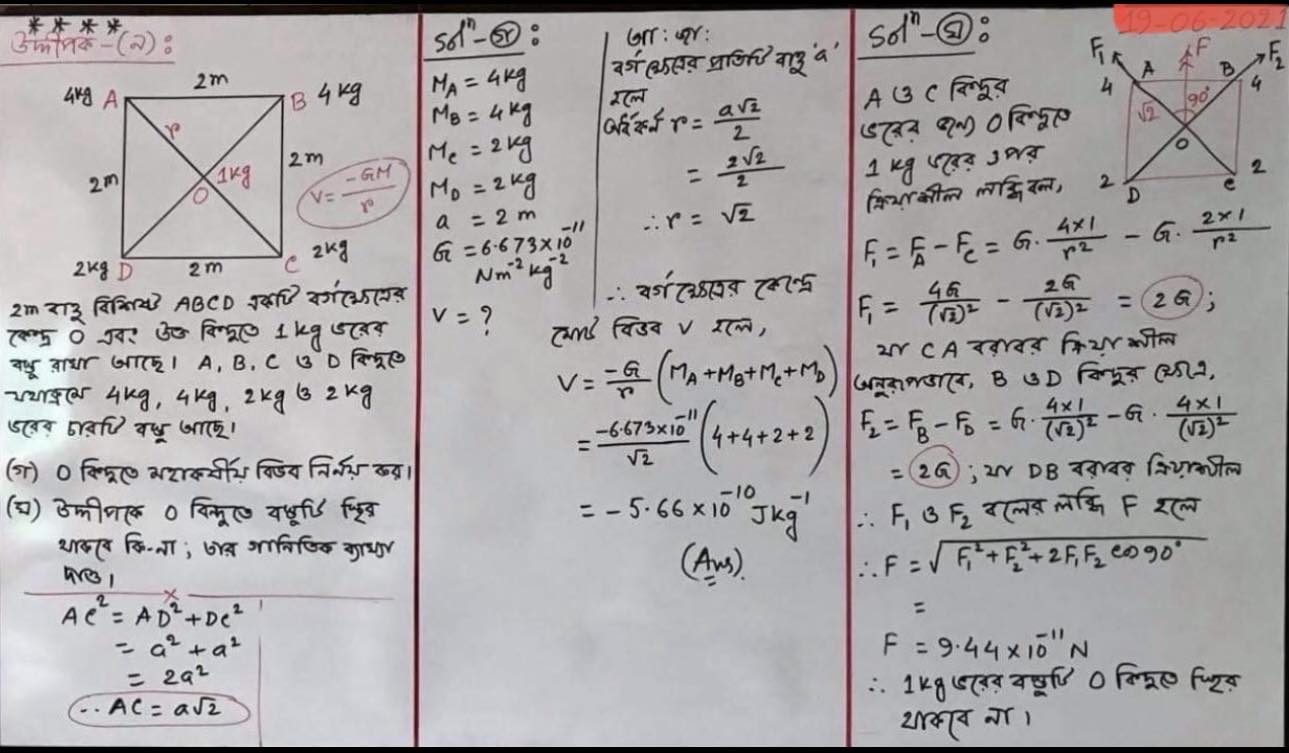 * * * *
উদ্দীপক-(ন):
4kg A 2m B 4kg
r
2m
O 1kg
2m
V = -GM/r
2kg D 2m C 2kg
2m বাহু বিশিষ্ট ABCD একটি বর্গক্ষেত্রের
কেন্দ্র O এবং উক্ত বিন্দুতে 1kg ভরের
বস্তু রাখা আছে। A, B, C ও D বিন্দুতে
যথাক্রমে 4kg, 4kg, 2kg ও 2kg
ভরের চারটি বস্তু আছে।
(গ) O বিন্দুতে মহাকর্ষীয় বিভব নির্নয় কর।
(ঘ) উদ্দীপকে O বিন্দুতে বস্তুটি স্থির
থাকবে কি-না; তার গানিতিক ব্যাখ্যা
দাও।
AC² = AD² + DC²
= a² + a²
= 2a²
∴ AC = a√2
Solⁿ-(গ):
M_A = 4kg
M_B = 4kg
M_C = 2kg
M_D = 2kg
a = 2m
G = 6.673×10⁻¹¹
Nm⁻²kg⁻²
V = ?
আ: জা:
বর্গক্ষেত্রের প্রতিটি বাহু 'a'
হলে
অর্ধকর্ন r = a√2/2
= 2√2/2
∴ r = √2
∴ বর্গক্ষেত্রের কেন্দ্রে
মোট বিভব V হলে,
V = -G/r (M_A+M_B+M_C+M_D)
= -6.673×10⁻¹¹/√2 (4+4+2+2)
= -5.66×10⁻¹⁰ Jkg⁻¹
(Ans)
19-06-2021
Solⁿ-(ঘ):
F₁ F F₂
4 A B 4
√2 90°
O
2 D C 2
A ও C বিন্দুর
ভরের জন্য O বিন্দুতে
1 kg ভরের উপর
ক্রিয়াশীল লব্ধি বল,
F₁ = F_A - F_C = G·4×1/r² - G·2×1/r²
F₁ = 4G/(√2)² - 2G/(√2)² = 2G;
যা CA বরাবর ক্রিয়াশীল
অনুরূপভাবে, B ও D বিন্দুর ক্ষেত্রে,
F₂ = F_B - F_D = G·4×1/(√2)² - G·4×1/(√2)²
= 2G; যা DB বরাবর ক্রিয়াশীল
∴ F₁ ও F₂ বলের লব্ধি F হলে
∴ F = √F₁²+F₂²+2F₁F₂ cos 90°
=
F = 9.44×10⁻¹¹ N
∴ 1kg ভরের বস্তুটি O বিন্দুতে স্থির
থাকবে না।